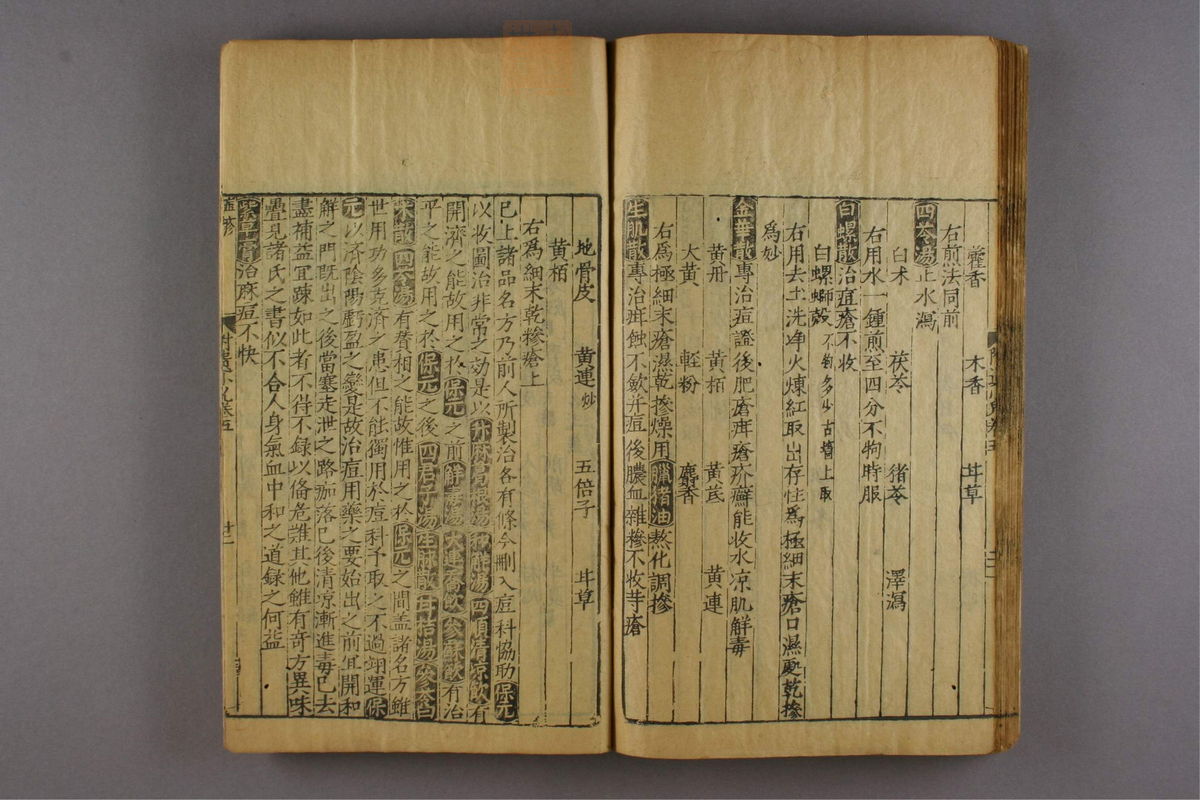 藿香 木香 甘草
右前法同前
四苓湯止水瀉
白术 茯苓 猪苓 澤瀉
右用水一鍾煎至四分不拘時服
白螺散治痘瘡不收
白螺螄殼不拘多少古墻上取
右用去土洗净火煉紅取出存性爲極細末瘡口濕處乾摻
爲妙
金華散專治痘證後肥瘡疳瘡疥癬能收水凉肌解毒
黄丹 黄栢 黄芪 黄連
大黄 輕粉 麝香
右爲極細末瘡濕乾摻燥用臘猪油熬化調摻
生肌散專治疳蝕不歛并痘後膿血雜糝不收等瘡
地骨皮 黄連炒 五倍子 甘草
黄栢
右爲細末乾糝瘡上
已上諸品名方乃前人所製治各有條今刪入痘科協助保元
以收圖治非常之功是以升麻葛根湯和解湯四順清凉飲有
開濟之能故用之於保元之前觧毒湯大連翹飲參蘇飲有治
平之能故用之於保元之後四君子湯生脉散甘桔湯參苓白
术散四苓湯有賛相之能故惟用之於保元之間盖諸名方雖
世用功多克濟之患但不能獨用於痘科予取之不過翊運保
元以済陰陽虧盈之變是故治痘用藥之要始出之前宜開和
解之門既出之後當塞走泄之路痂落已後清凉漸進毒已去
盡補益宜踈如此者不得不録以俻危難其他雖有奇方異味
疊見諸氏之書似不合人身氣血中和之道録之何益
紫草膏治麻痘不快